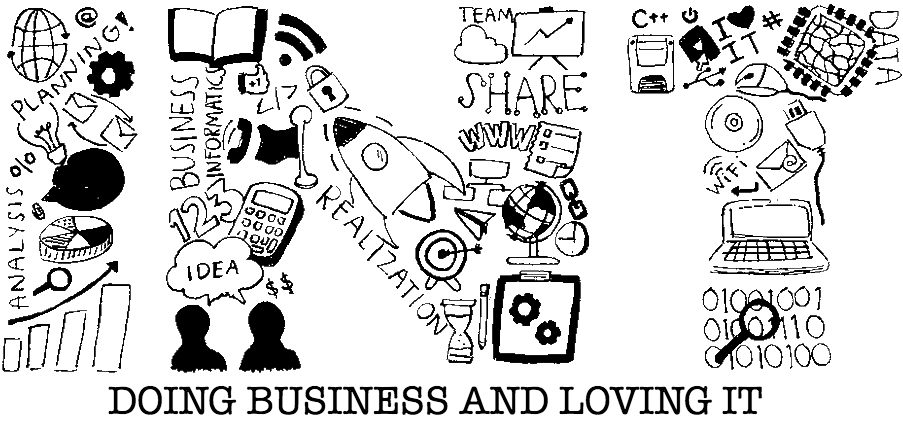 @
PLANNING!
%
ANALYSIS
BUSINESS
INFORMATICS
</>
123
IDEA
$$
REALIZATION
TEAM
SHARE
WWW
C++
I ♥ IT
#
DATA
WiFi
01001001
01000110
01010100
DOING BUSINESS AND LOVING IT